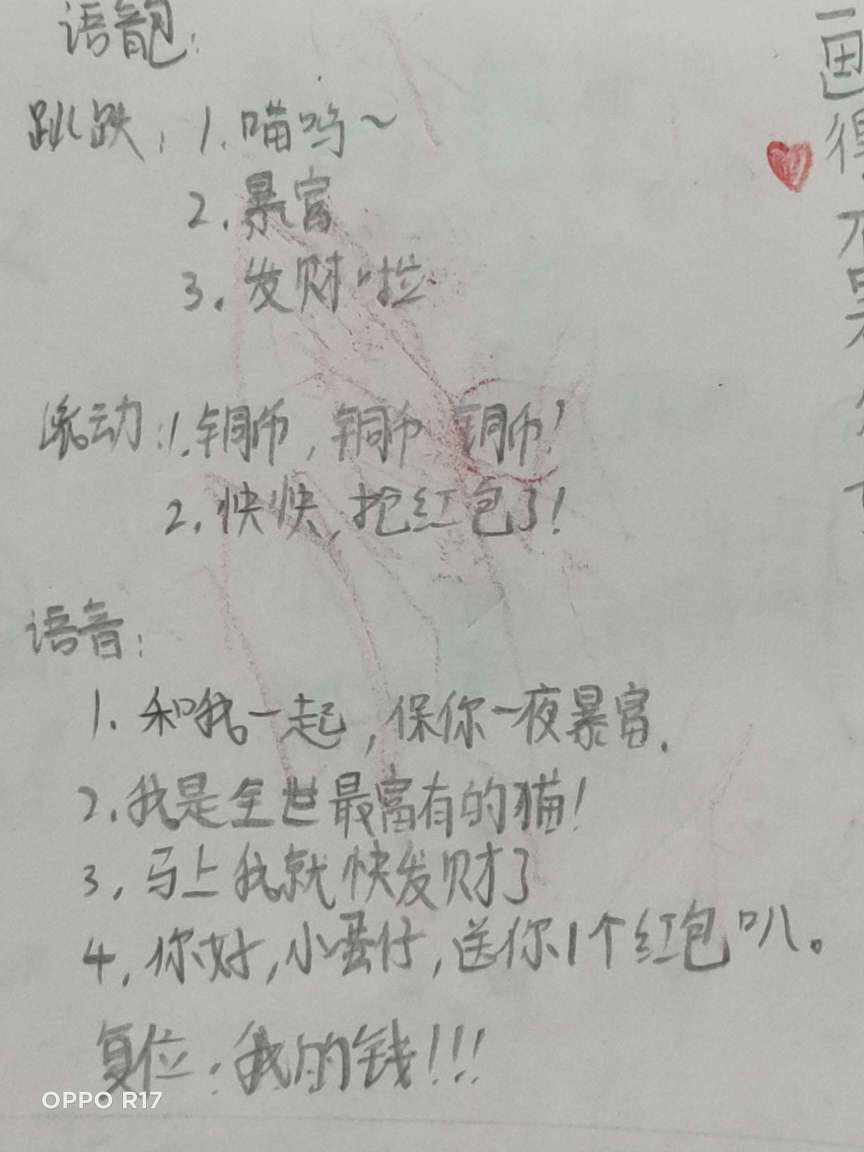 语音包:
跳跌:1.喵呜~
2.暴富
3.发财啦
滚动:1.铜币,铜币 铜币!
2.快快,抢红包了!
语音:
1.和我一起,保你一夜暴富.
2.我是全世最富有的猫!
3,马上我就快发财了
4,你好,小蛋仔,送你1个红包叭。
复位:我的钱!!!
画得不
OPPO R17